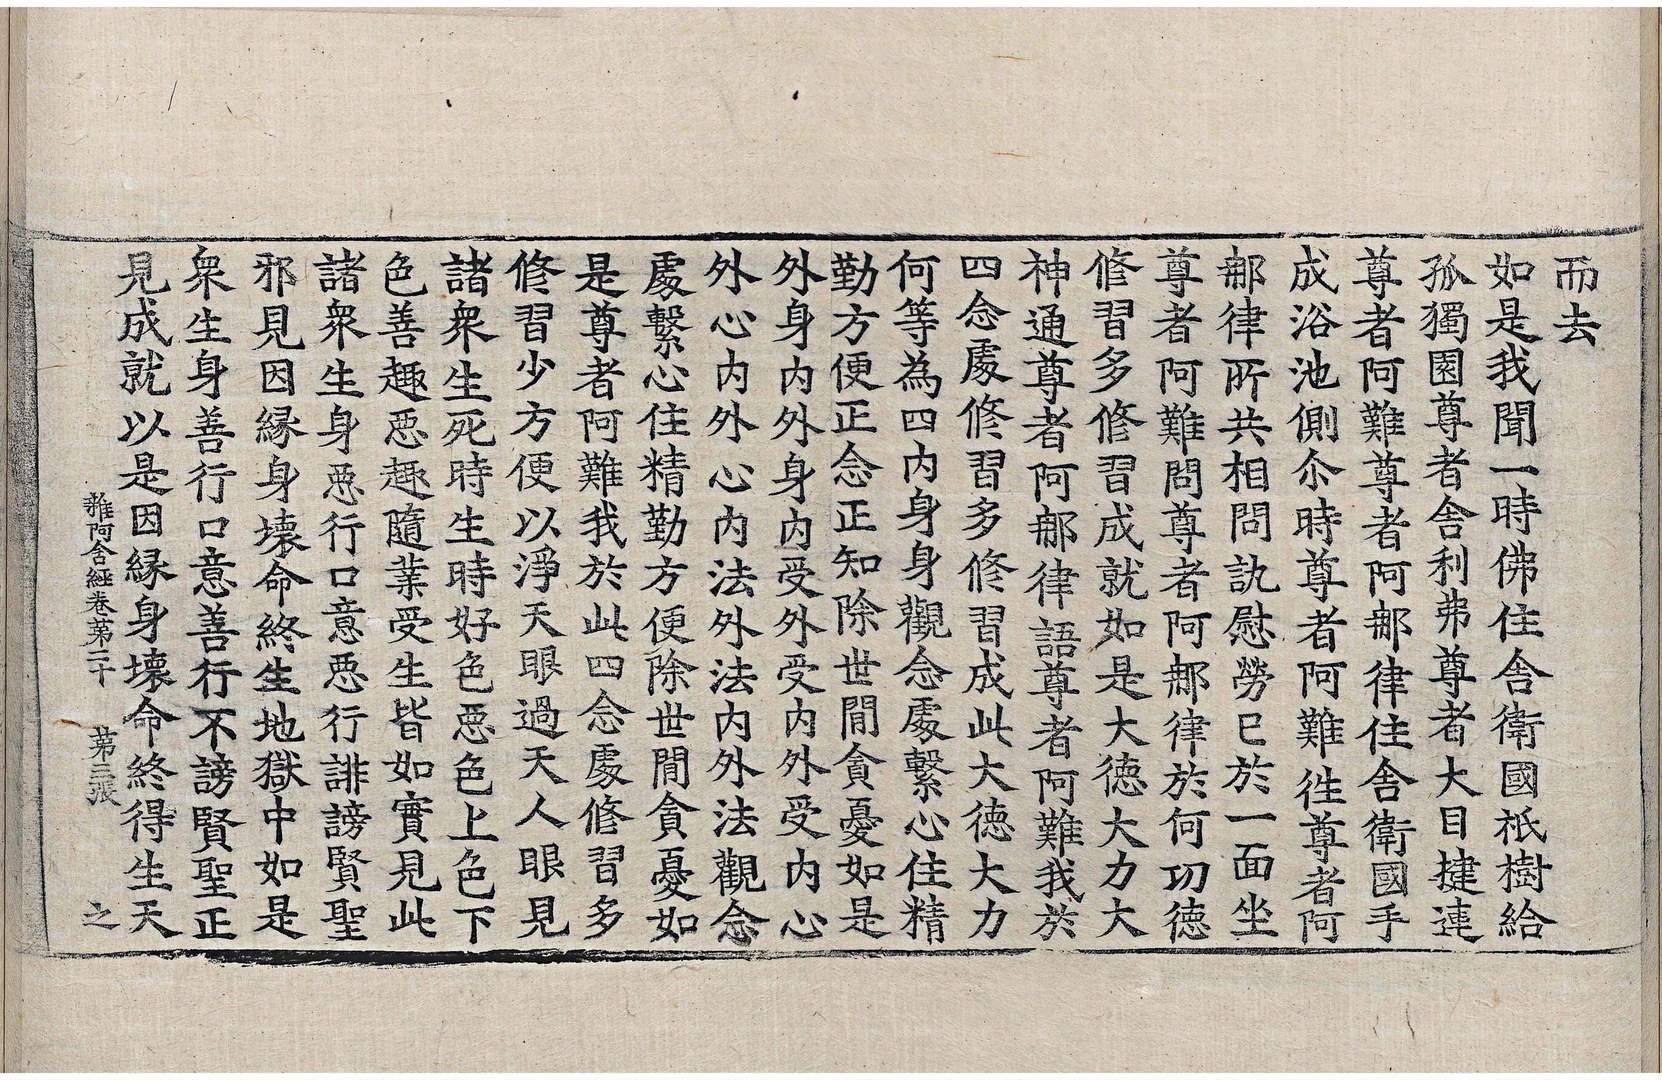 而去
如是我聞一時佛住舍衛國祇樹給
孤獨園尊者舍利弗尊者大目揵連
尊者阿難尊者阿那律住舍衛國手
成浴池側尒時尊者阿難往尊者阿
那律所共相問訊慰勞已於一面坐
尊者阿難問尊者阿那律於何功德
修習多修習成就如是大德大力大
神通尊者阿那律語尊者阿難我於
四念處修習多修習成此大德大力
何等為四内身身觀念處繫心住精
勤方便正念正知除世閒貪憂如是
外身内外身内受外受内外受内心
外心内外心内法外法内外法觀念
處繫心住精勤方便除世閒貪憂如
是尊者阿難我於此四念處修習多
修習少方便以淨天眼過天人眼見
諸衆生死時生時好色惡色上色下
色善趣惡趣隨業受生皆如實見此
諸衆生身惡行口意惡行誹謗賢聖
邪見因緣身壞命終生地獄中如是
衆生身善行口意善行不謗賢聖正
見成就以是因緣身壞命終得生天
雜阿含經卷第二十 第三張 之